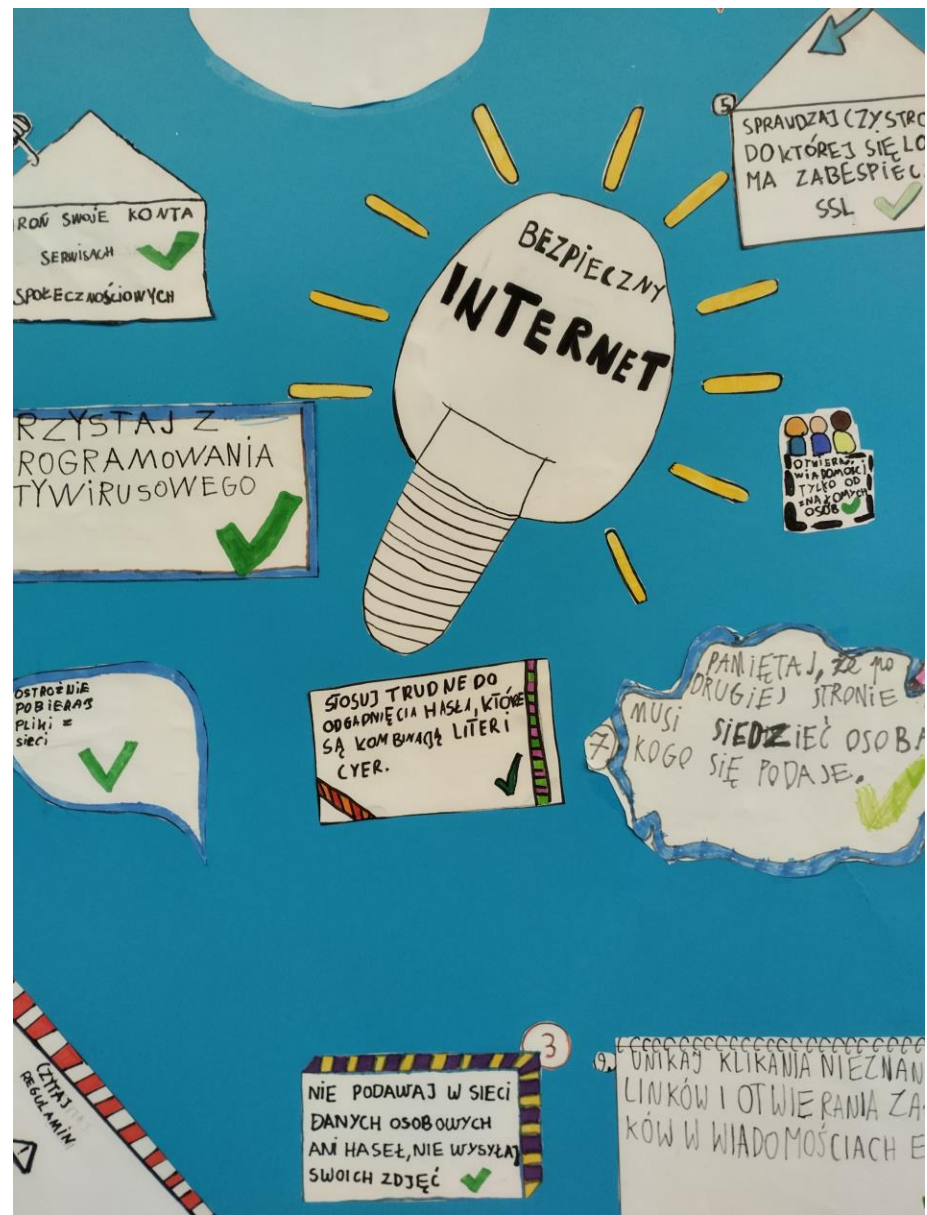 5
SPRAWDZAJ CZY STRO
DO KTÓREJ SIĘ LO
MA ZABESPIEC
SSL
ROŃ SWOJE KONTA
SERWISACH
SPOŁECZNOŚCIOWYCH
BEZPIECZNY
INTERNET
RZYSTAJ Z
ROGRAMOWANIA
TYWIRUSOWEGO
OTWIERAJ
WIADOMOŚCI
TYLKO OD
ZNAJOMYCH
OSÓB
OSTROŻNIE
POBIERAJ
PLiKi z
sieci
STOSUJ TRUDNE DO
ODGADNIĘCIA HASŁA, KTÓRE
SĄ KOMBINACJĄ LITER I
CYER.
7
PAMIĘTAJ, że po
DRUGIEJ STRONIE
MUSI SIEDZIEĆ OSOBA
KOGO SIĘ PODAJE.
CZYTAJ
REGULAMIN
3
NIE PODAWAJ W SIECI
DANYCH OSOBOWYCH
ANI HASEŁ, NIE WYSYŁAJ
SWOICH ZDJĘĆ
9.
UNIKAJ KLIKANIA NIEZNAN
LINKÓW I OTWIERANIA ZA
KÓW W WIADOMOŚCIACH E